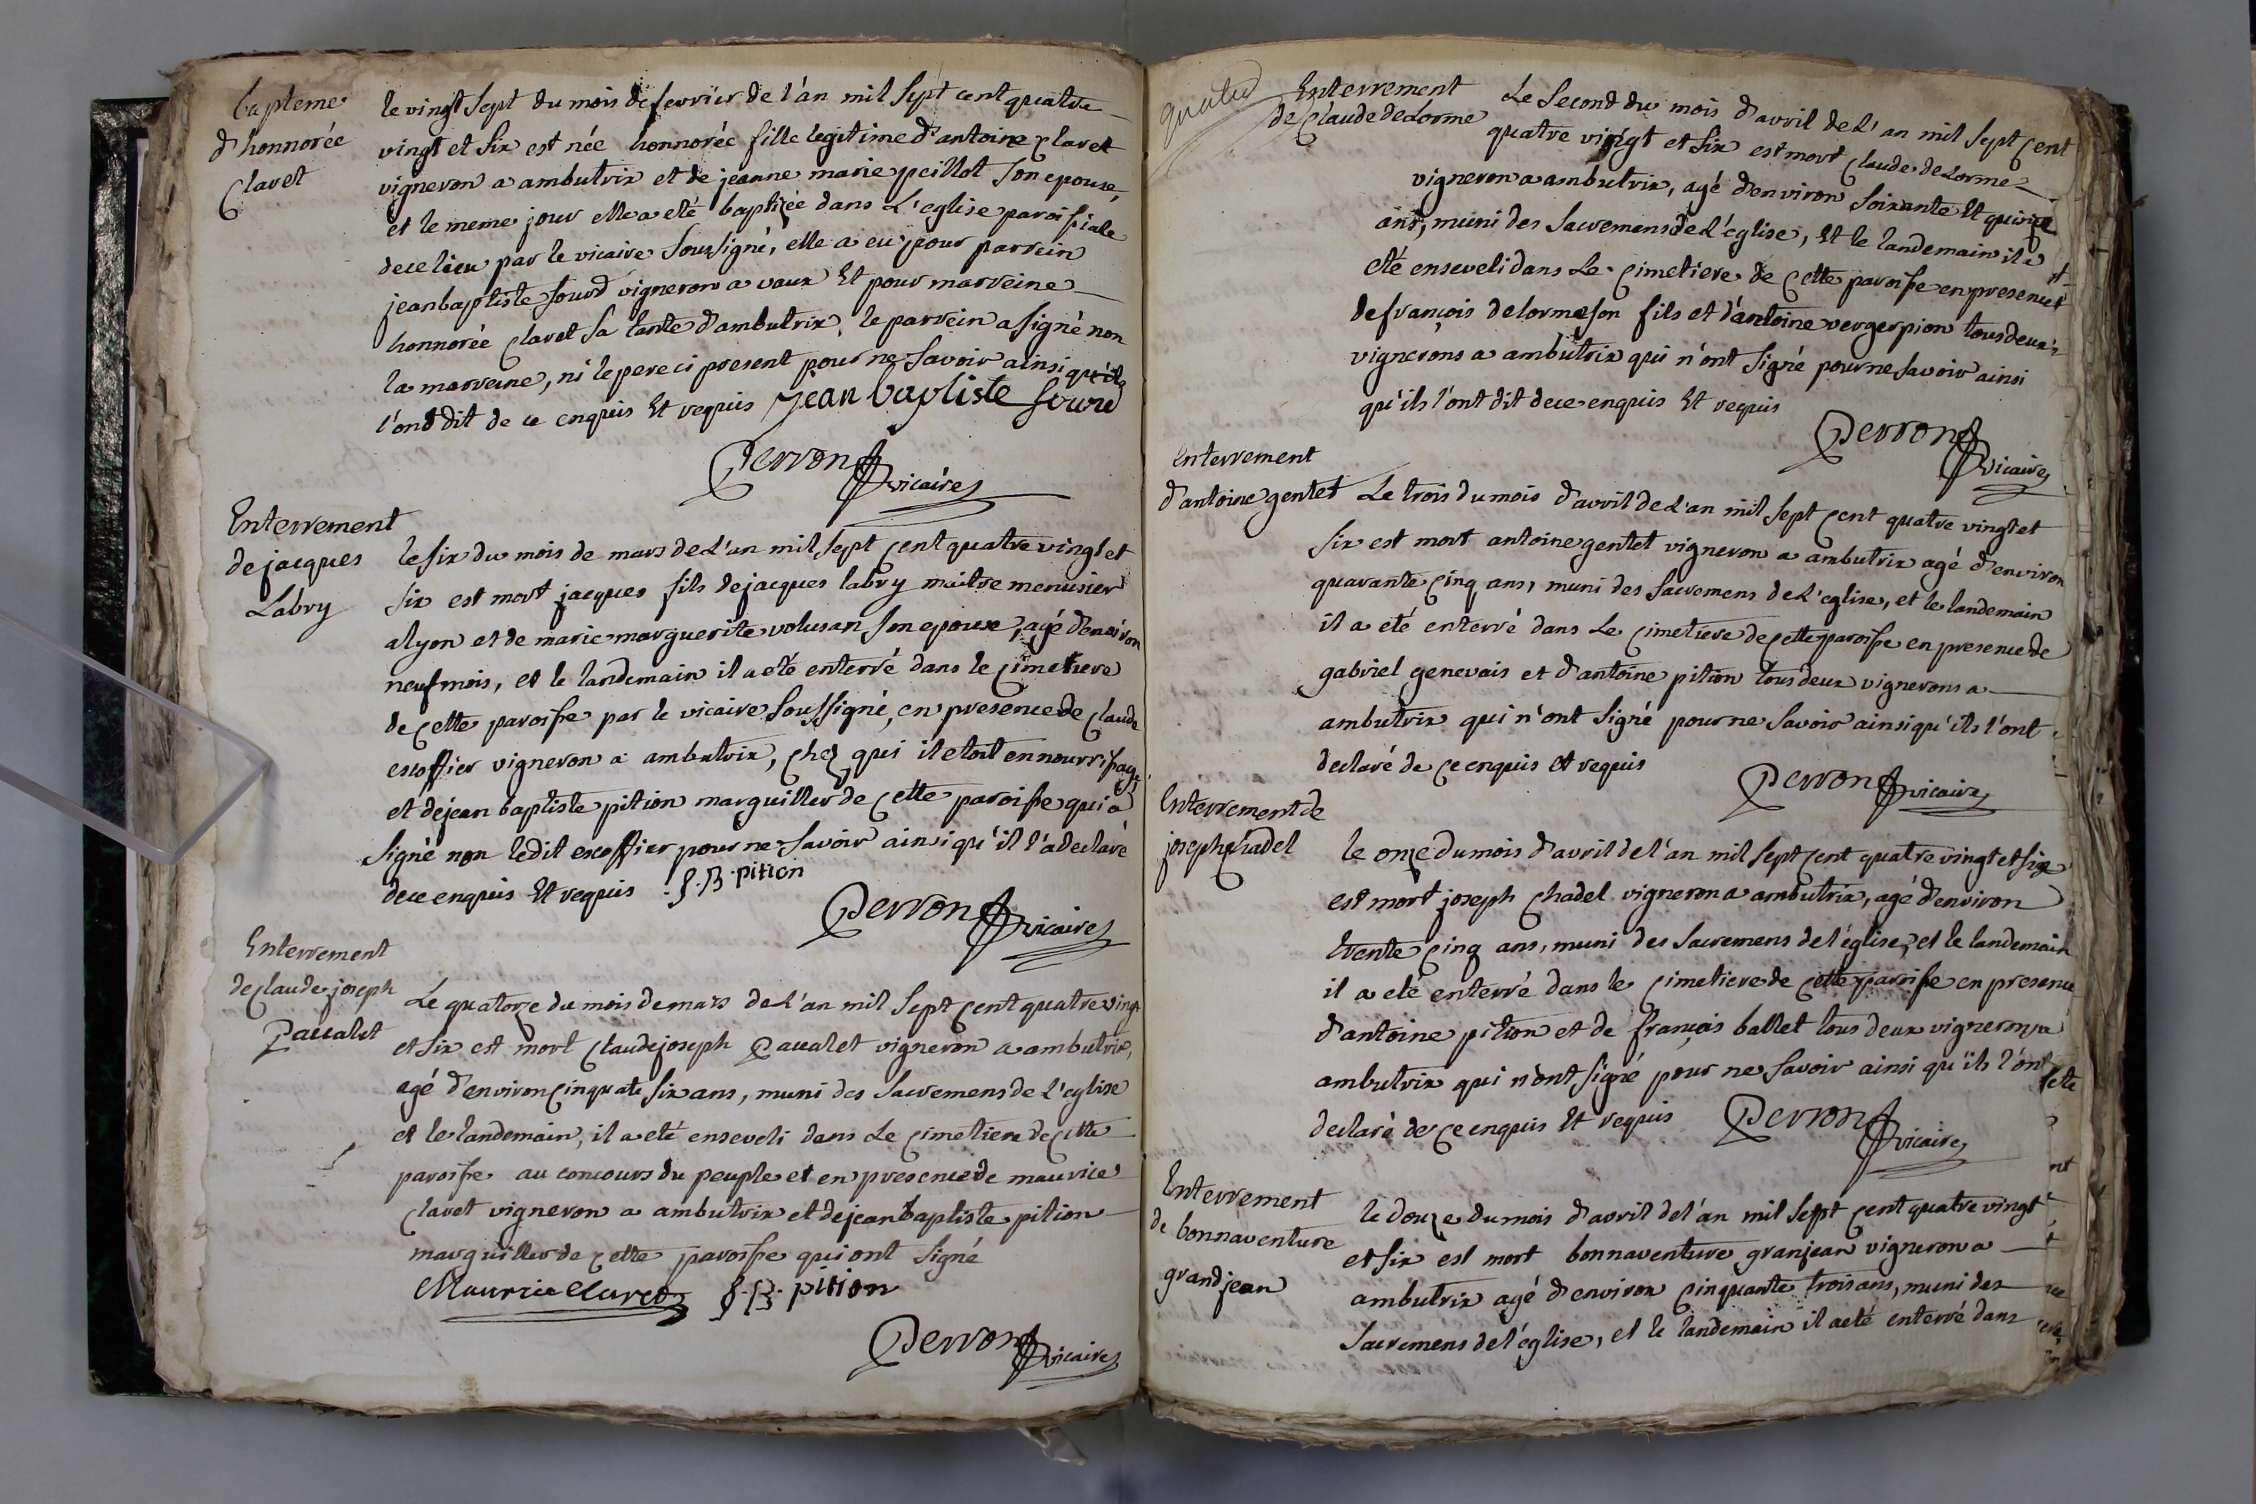 bapteme
d'honnorée
Clavet
le vingt sept du mois de fevrier de l'an mil sept cent quatre
vingt et six est née honnorée fille legitime d'antoine Clavet
vigneron a ambutrix et de jeanne marie peillot son epouse,
et le meme jour elle a eté baptizée dans L'eglise paroissiale
de ce lieu par le vicaire soussigné, elle a eu pour parrein
jean baptiste sourd vigneron a vaux Et pour marreine
honnorée Clavet sa tante d'ambutrix, le parrein a signé non
la marreine, ni le pere ci present pour ne savoir ainsi qu'ils
l'ont dit de ce enquis Et requis Jean baptiste sourd
Perron vicaire
Enterrement
de jacques
Labry
le six du mois de mars de L'an mil sept cent quatre vingt et
six est mort jacques fils de jacques labry maitre menusier
a lyon et de marie marguerite volusan son epouse, agé d'environ
neuf mois, et le landemain il a eté enterré dans le cimetiere
de cette paroisse par le vicaire soussigné, en presence de Claude
escoffier vigneron a ambutrix, chez qui il etoit en nourrissage
et de jean baptiste pition marguiller de cette paroisse qui a
signé non ledit escoffier pour ne savoir ainsi qu'il l'a declaré
de ce enquis Et requis J.B. pition
Perron vicaire
Enterrement
de Claude joseph
Paualet
Le quatorze du mois de mars de L'an mil sept cent quatre vingt
et six est mort Claude joseph Paualet vigneron a ambutrix,
agé d'environ cinquate six ans, muni des sacremens de L'eglise
et le landemain, il a eté enseveli dans Le cimetiere de cette
paroisse au concours du peuple et en presence de maurice
Clavet vigneron a ambutrix et de jean baptiste pition
marguiller de cette paroisse qui ont signé
Maurice Clavet J.B. pition
Perron vicaire
Enterrement
de Claude deLorme
Le second du mois d'avril de L'an mil sept cent
quatre vingt et six est mort Claude deLorme
vigneron a ambutrix, agé d'environ soixante Et quinze
ans, muni des sacremens de L'église, Et le landemain il a
eté enseveli dans Le cimetiere de cette paroisse en presence
de françois delorme son fils et d'antoine vergerpion tous deux
vignerons a ambutrix qui n'ont signé pour ne savoir ainsi
qu'ils l'ont dit de ce enquis Et requis
Perron vicaire
Enterrement
d'antoine gentet
Le trois du mois d'avril de L'an mil sept cent quatre vingt et
six est mort antoine gentet vigneron a ambutrix agé d'environ
quarante cinq ans, muni des sacremens de L'eglise, et le landemain
il a eté enterré dans Le cimetiere de cette paroisse en presence de
gabriel genevais et d'antoine pition tous deux vignerons a
ambutrix qui n'ont signé pour ne savoir ainsi qu'ils l'ont
declaré de ce enquis et requis
Perron vicaire
Enterrement de
joseph chadel
le onze du mois d'avril de l'an mil sept cent quatre vingt et six
est mort joseph Chadel vigneron a ambutrix, agé d'environ
trente cinq ans, muni des sacremens de l'église, et le landemain
il a eté enterré dans le cimetiere de cette paroisse en presence
d'antoine pition et de françois ballet tous deux vignerons a
ambutrix qui n'ont signé pour ne savoir ainsi qu'ils l'ont
declaré de ce enquis Et requis
Perron vicaire
Enterrement
de bonnaventure
grandjean
le douze du mois d'avril de l'an mil sept cent quatre vingt
et six est mort bonnaventure granjean vigneron a
ambutrix agé d'environ cinquante trois ans, muni des
sacremens de l'église, et le landemain il a eté enterré dans